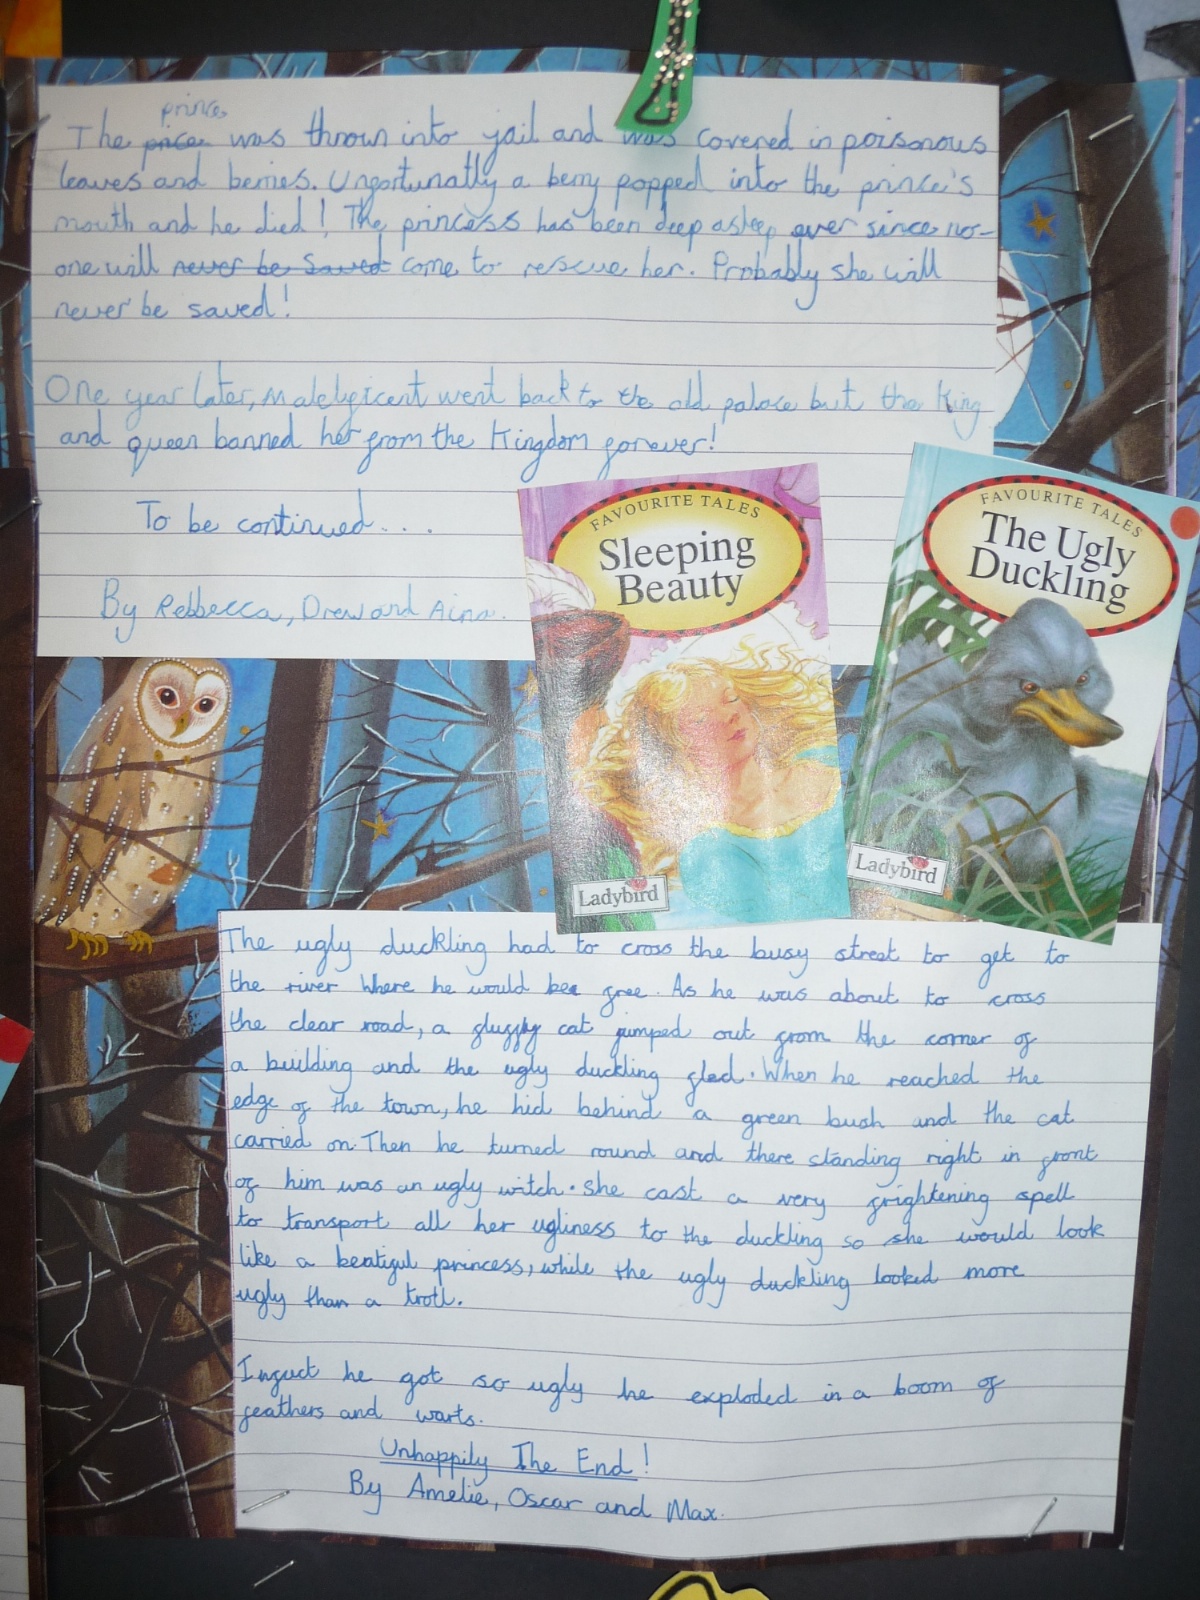 prince
The price was thrown into jail and was covered in poisonous
leaves and berries. Unfortunatly a berry popped into the prince's
mouth and he died! The princess has been deep asleep ever since no-
one will never be saved come to rescue her. Probably she will
never be saved!
One year later, Malefficent went back to the old palace but the King
and queen banned her from the Kingdom forever!
To be continued...
By Rebbecca, Drew and Aina.
FAVOURITE TALES
Sleeping
Beauty
Ladybird
FAVOURITE TALES
The Ugly
Duckling
Ladybird
The ugly duckling had to cross the busy street to get to
the river where he would be free. As he was about to cross
the clear road, a fluffy cat jumped out from the corner of
a building and the ugly duckling fled. When he reached the
edge of the town, he hid behind a green bush and the cat
carried on. Then he turned round and there standing right in front
of him was an ugly witch. She cast a very frightening spell
to transport all her ugliness to the duckling so she would look
like a beatiful princess, while the ugly duckling looked more
ugly than a troll.
Infact he got so ugly he exploded in a boom of
feathers and warts.
Unhappily The End!
By Amelie, Oscar and Max.